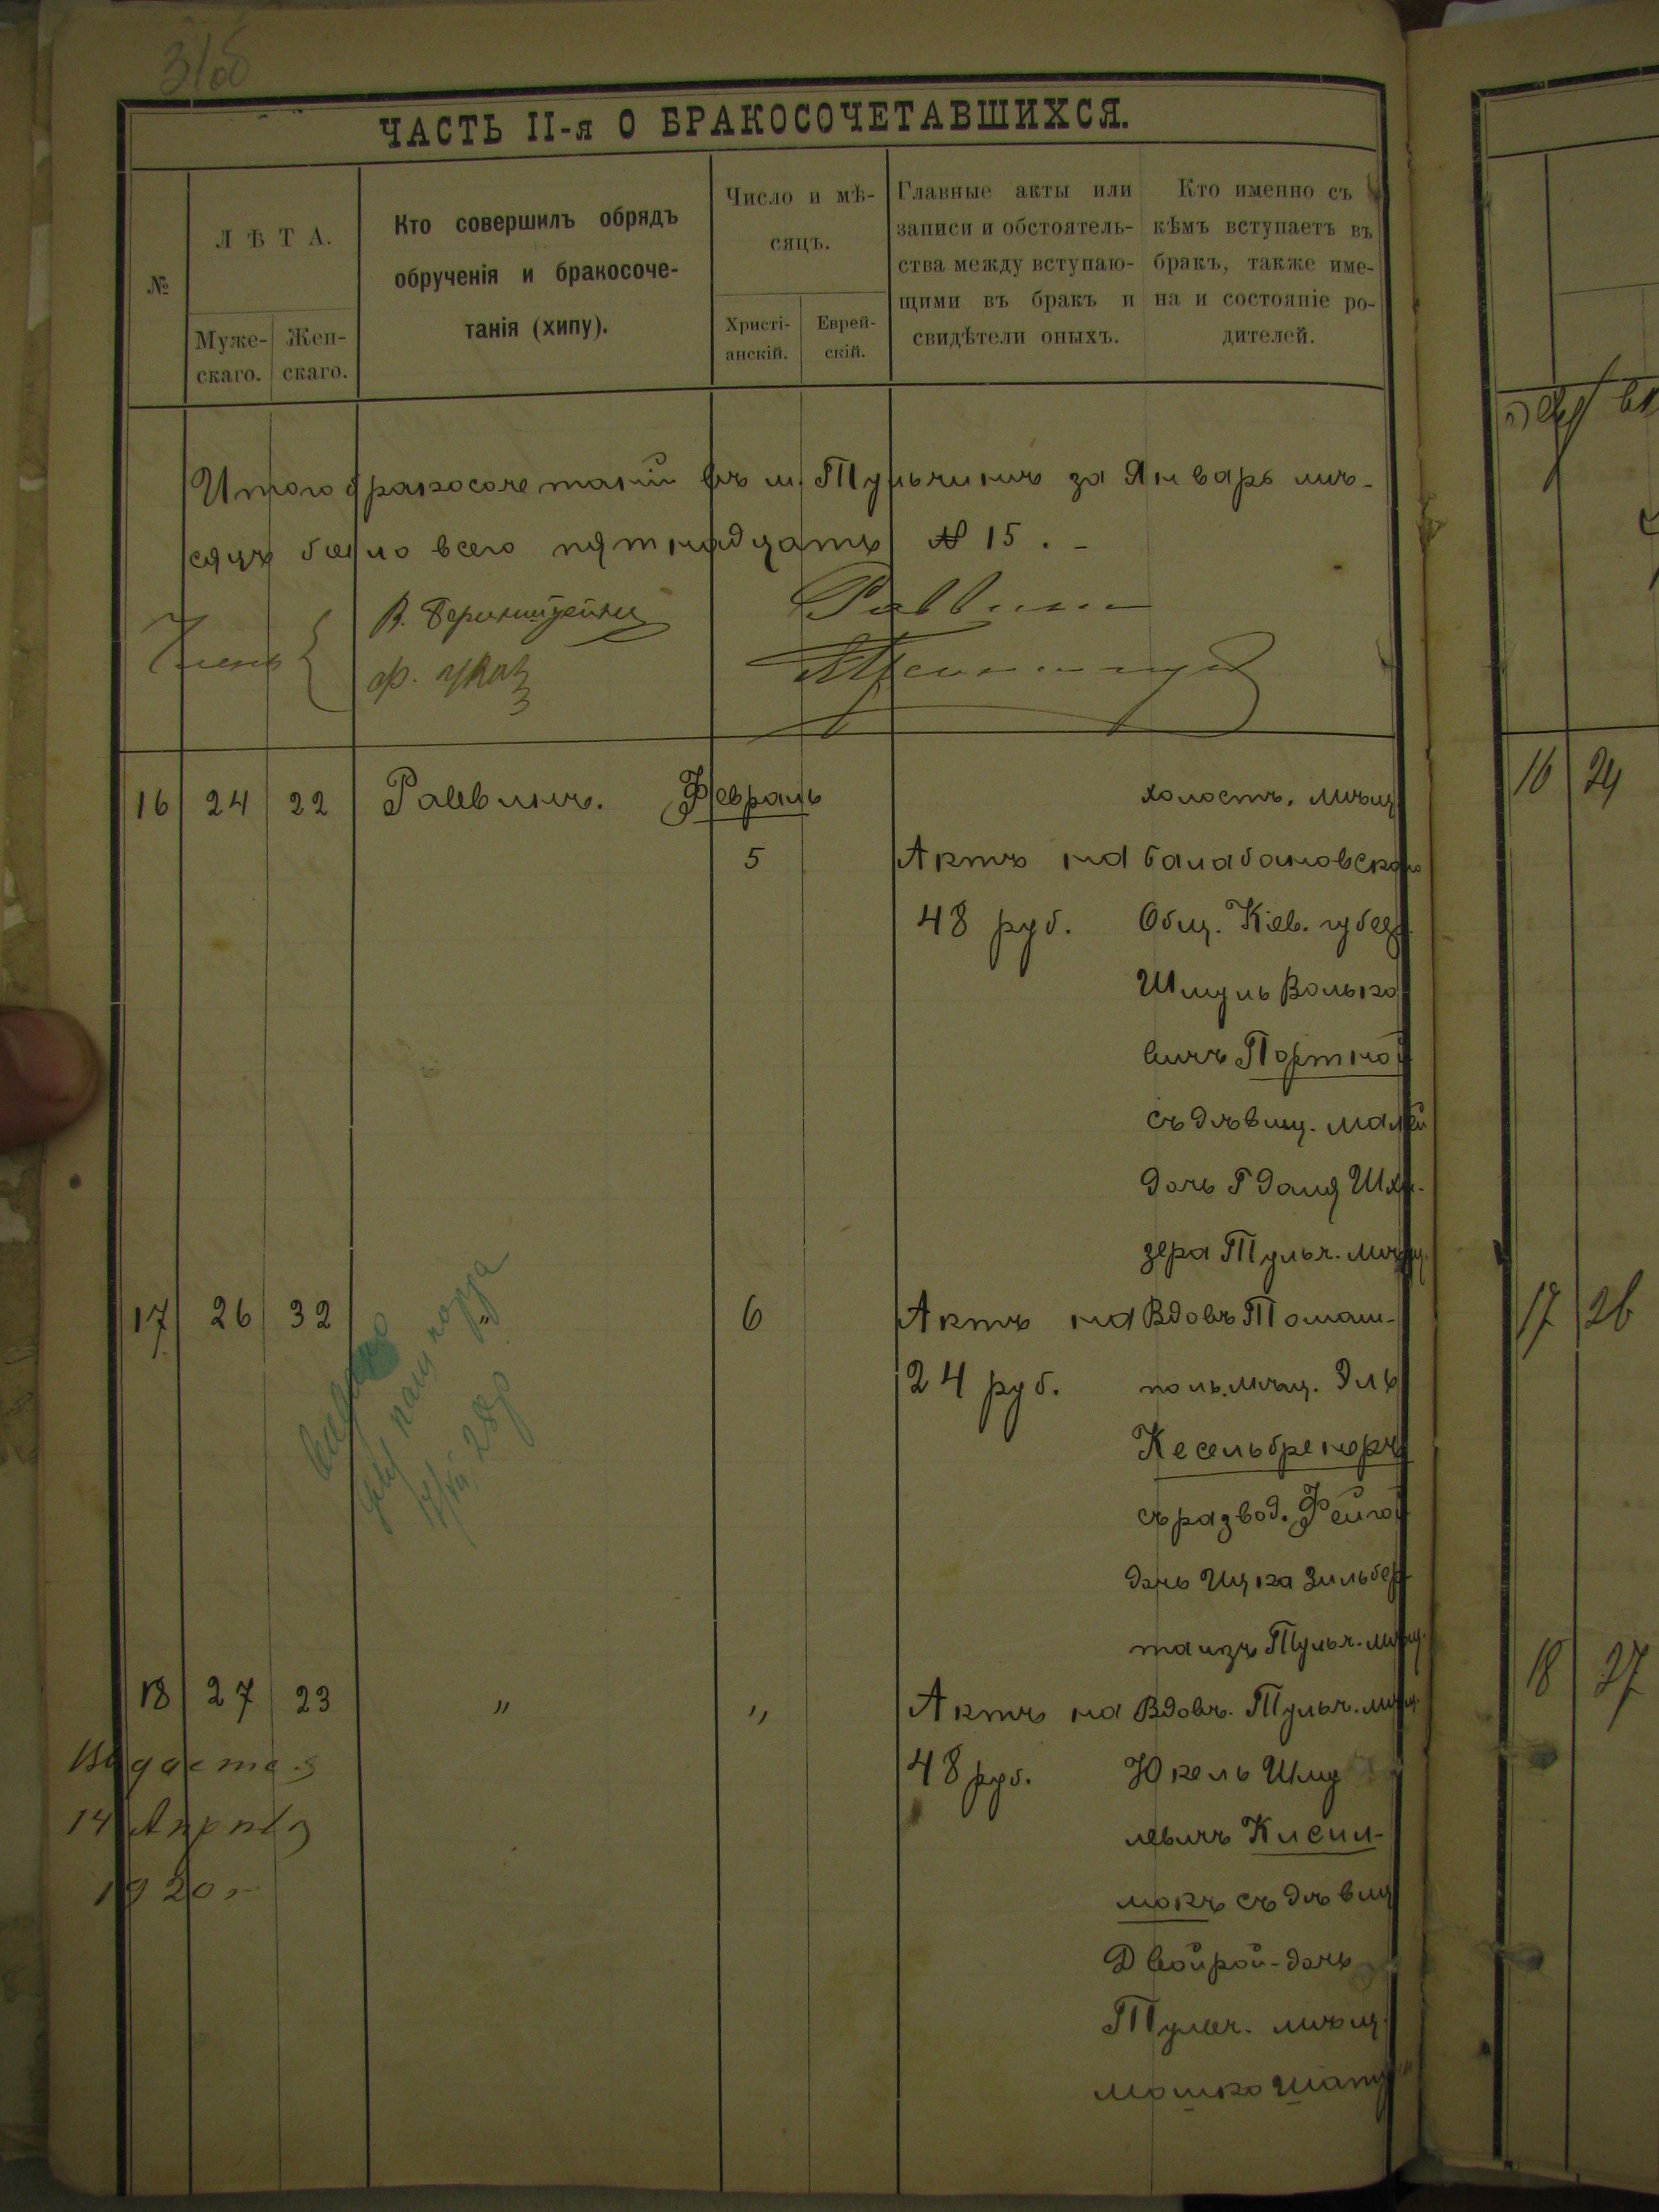 31об
ЧАСТЬ II-я О БРАКОСОЧЕТАВШИХСЯ.
№
ЛѢТА.
Муже-
скаго.
Жен-
скаго.
Кто совершилъ обрядъ
обрученія и бракосоче-
танія (хипу).
Число и мѣ-
сяцъ.
Христі-
анскій.
Еврей-
скій.
Главные акты или
записи и обстоятель-
ства между вступаю-
щими въ бракъ и
свидѣтели оныхъ.
Кто именно съ
кѣмъ вступаетъ въ
бракъ, также име-
на и состояніе ро-
дителей.
Итого бракосочетаній въ м. Тульчинѣ за Январь мѣ-
сяцъ было всего пятнадцать № 15. -
Раввинъ
16 24 22 Раввинъ. Февраль
5
Актъ на
48 руб.
холостъ. мѣщ.
балабановскаго
Общ. Кіев. губер.
Шмуль Волько
вичъ Портной
съ дѣвиц. Малкй
дочь Гдаля Шхн.
зера Тульч. мѣщ.
17 26 32 „ 6
Актъ на
24 руб.
Вдовъ Томаш-
поль. мѣщ. Эль
Кесельбренеръ
съ развод. Фейгой
дочь Ицка Зильбер
Тульч. мѣщ.
18 27 23 „ „
Актъ на
48 руб.
Вдовъ. Тульч. мѣщ.
Юкель Шму
левичъ Кисил-
мокъ съ дѣвиц
Двойрой-дочь
Тульч. мѣщ.
Мошко
14 Апрѣля
1920 г.
16 24
17 26
18 27